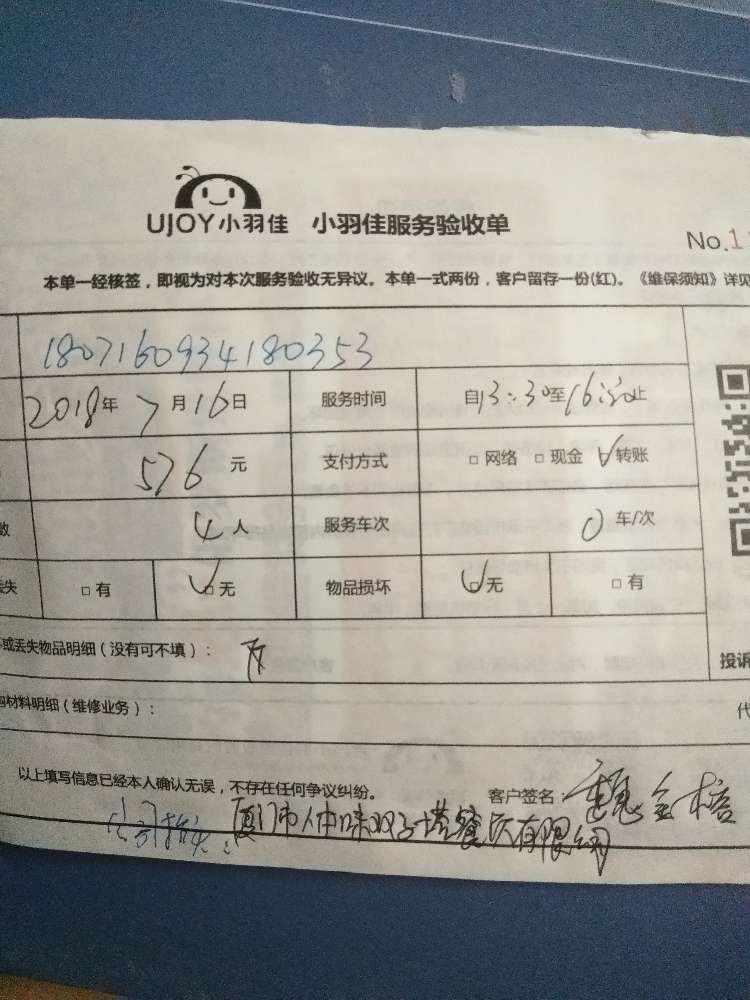 UJOY小羽佳 小羽佳服务验收单
No.1
本单一经核签，即视为对本次服务验收无异议。本单一式两份，客户留存一份(红)。《维保须知》详见
1807160934180353
2018年7月16日 服务时间 自13:30至16:30止
576元 支付方式 □网络 □现金 ☑转账
数 4人 服务车次 0车/次
丢失 □有 ☑无 物品损坏 ☑无 □有
或丢失物品明细（没有可不填）： 无
投诉
材料明细（维修业务）： 代
以上填写信息已经本人确认无误，不存在任何争议纠纷。 客户签名：魏金榕
厦门市人本味双子塔餐饮有限公司